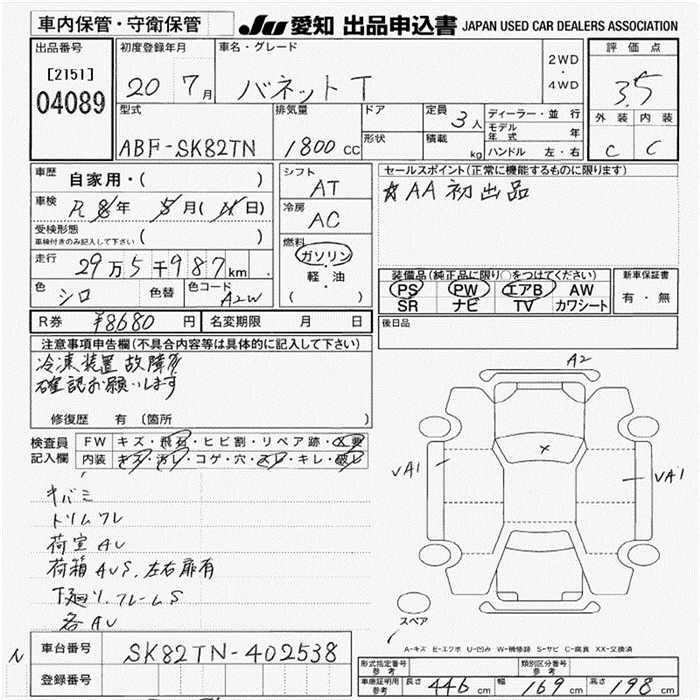 車内保管・守衛保管
JU 愛知 出品申込書 JAPAN USED CAR DEALERS ASSOCIATION
出品番号
[2151]
04089
初度登録年月
20 7月
車名・グレード
バネット T
2WD
・
4WD
評価点
3.5
外装 内装
C C
型式
ABF-SK82TN
排気量
1800 cc
ドア
形状
定員
3人
積載
kg
ディーラー・並行
モデル年式 年
ハンドル 左・右
車歴 自家用・( )
車検 R 8年 5月(11日)
受検形態
車検付きのみ記入して下さい ( )
走行 29万5千987km
色 シロ 色替 色コード A2W
シフト
AT
冷房
AC
燃料
ガソリン
・
軽・油
( )
セールスポイント(正常に機能するものに限ります)
☆AA初出品
装備品(純正品に限り○をつけてください)
PS PW エアB AW
SR ナビ TV カワシート
新車保証書
有・無
R券 ¥8680 円 名変期限 月 日
後日品
注意事項申告欄(不具合内容等は具体的に記入して下さい)
冷凍装置 故障有
確認お願いします
修復歴 有 〔箇所
検査員
記入欄
FW キズ・飛石・ヒビ割・リペア跡・X要
内装 キズ・汚れ・コゲ・穴・スレ・キレ・破レ
キバミ
トリムワレ
荷室AU
荷箱AUS,左右扉有
下廻り.フレームS
各AU
A2
X
VA1
VA1
スペア
A-キズ E-エクボ U-凹み W-補修跡 S-サビ C-腐食 XX-交換済
N
車台番号 SK82TN-402538
登録番号
形式指定番号
参考
類別区分番号
参考
車庫証明用
参考
長さ 446cm 幅 169cm 高さ 198cm